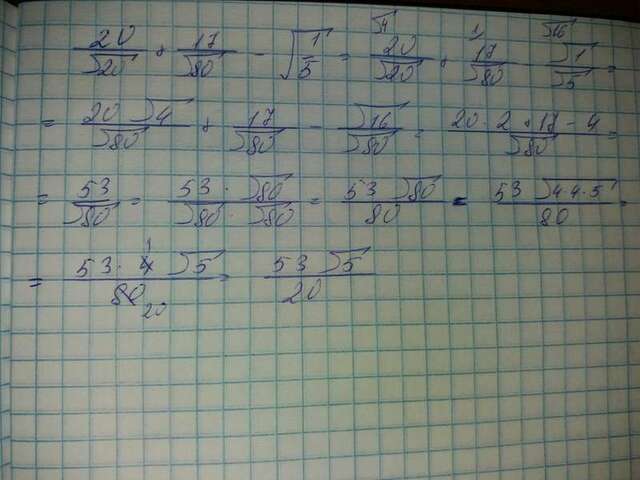 20/√20 + 17/√80 - √(1/5) = √4 20/√20 + 1/ 17/√80 - √16 √1/√5 =
= 20 √4/√80 + 17/√80 - √16/√80 = 20 · 2 + 17 - 4/√80 =
= 53/√80 = 53 · √80/√80 · √80 = 53 √80/80 = 53 √4·4·5/80
= 53 · 4 1 √5/80 20 = 53 √5/20